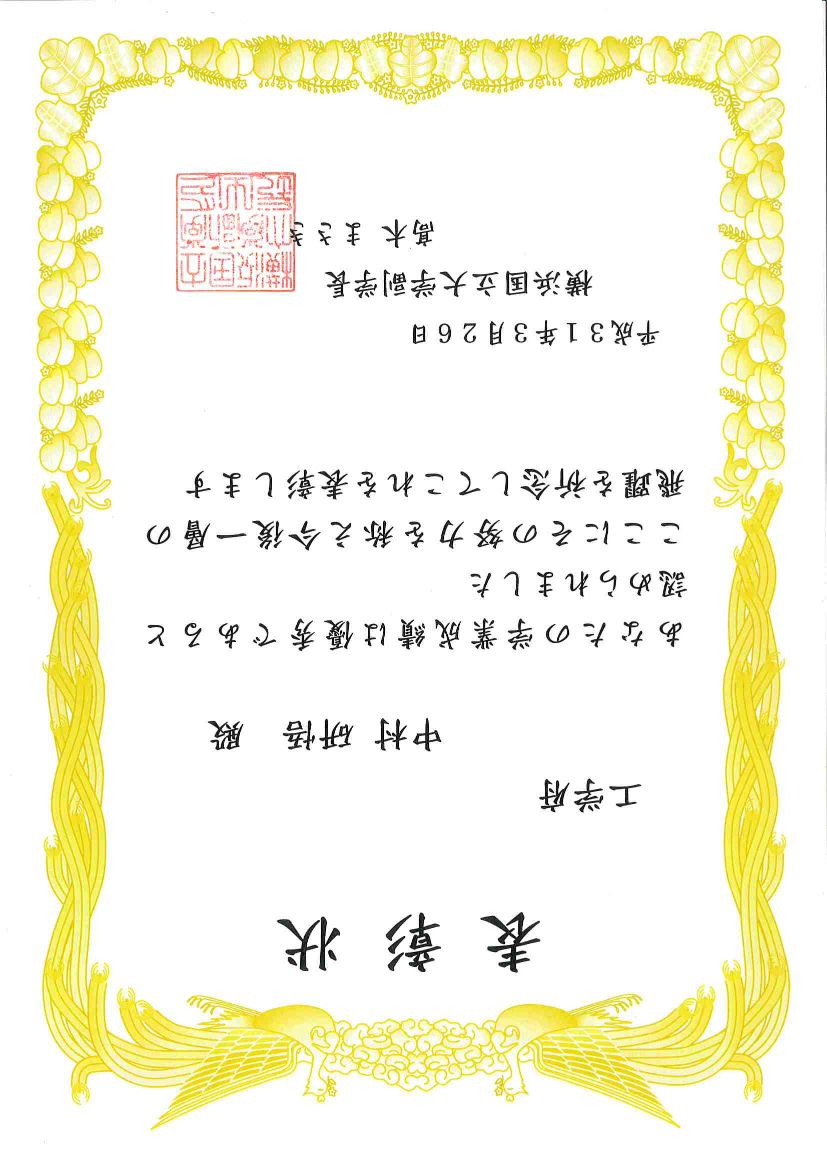 表彰状
工学府
中村 研悟 殿
あなたの学業成績は優秀であると
認められました
ここにその努力を称え今後一層の
飛躍を祈念してこれを表彰します
平成31年3月26日
横浜国立大学副学長
髙木 まさき